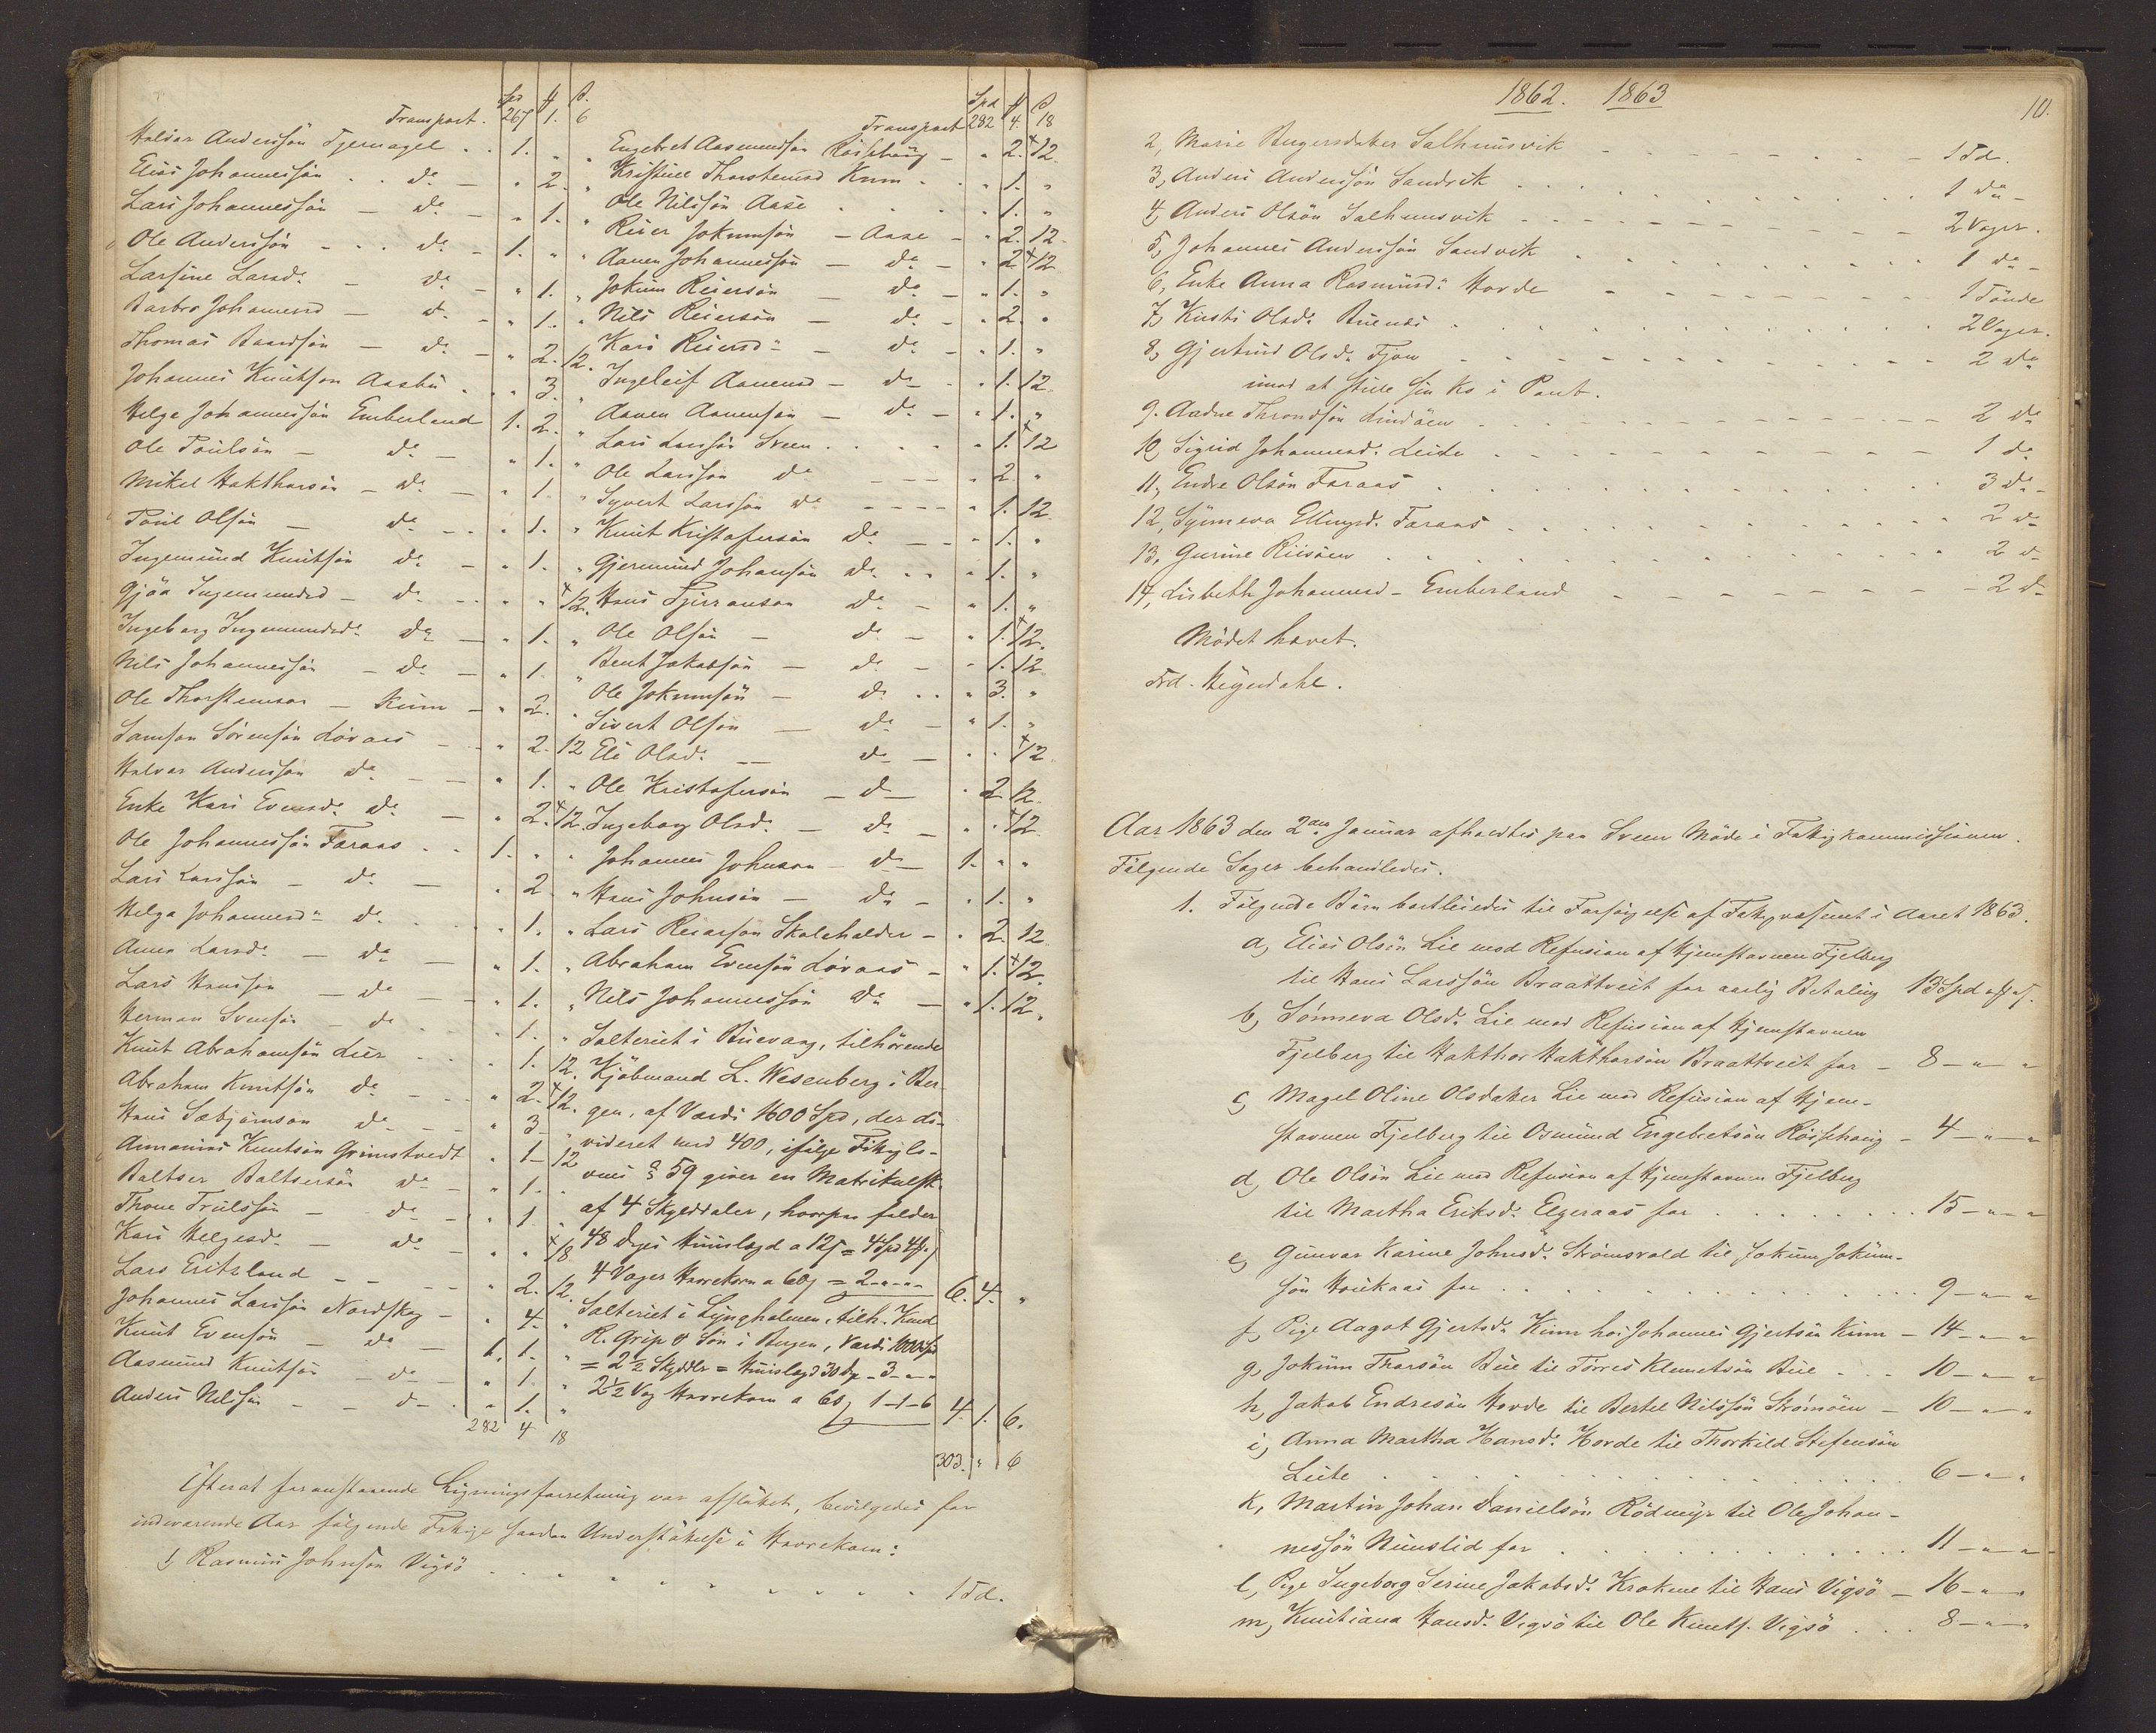 Spd # ß.
Transport. 267 1. 6
Halvor Anderssön Tjernagel . . 1. " "
Elias Johannessön . . do - " 2. "
Lars Johannessön - do - " 1. "
Ole Anderssön - . . do - 1. " "
Larsine Larsd. - do - " 1. "
Barbro Johannesd - do - " 1. "
Thomas Baardsön - do - " 2. 12.
Johannes Knutson Aasbu . . " 3. "
Helge Johannessön Emberland 1. 2. "
Ole Poulsön - do - " 1. "
Mikel Hakthorsön - do - " 1 "
Poul Olsön - do - " 1. "
Ingemund Knutsön do - " 1. "
Gjöa Ingemundsd - do - " " 12.
Ingeborg Ingemundsd. do - " 1. "
Nils Johannessön - do - " 1. "
Ole Thorstensson - Kinn - " 2. "
Samson Sörensön Løvaas - " 2. 12
Halvor Andersson do - - " 1. "
Enke Kari Evensd. do - " 2. 12.
Ole Johannessön Faraas . . 1. " "
Lars Larssön - do - " 2 "
Helga Johannesd. do . . " 1. "
Anna Larsd. - do - " 1. "
Lars Hanssön - do - - " 1. "
Herman Svensön - do - . 1. "
Knut Abrahamsön Lier . . " 1. 12.
Abraham Knutsön do - " 2. 12.
Hans Sæbjörnson do - - " 3 "
Ammanias Knutsön Grimstvedt . 1- 12
Baltser Baltsersön do - " 1. "
Thore Trulssön - do - " 1 "
Kari Helgesd. - do - " " 18
Lars Eritsland - - - " 2. 12.
Johannes Larssön Nordskog - " 4. "
Knut Evensön - do - 1. 1. "
Aasmund Knutsön - do - " 1. "
Anders Nilssön - - do - " 1. "
282 4 18
Spd # ß
Transport 282 4. 18
Engebret Aasmundsön Röishaug - " 2. 12.
Kristine Thorstensd Kinn . . " 1. "
Ole Nilssön Aase . . . " 1. "
Reier Jokumsön - Aase - " 2. 12.
Aanen Johannessön - do - " 2 12
Jokum Reiersön - do - " 1. "
Nils Reiersön - do - " 2. "
Kari Reiersd. - do - " 1. "
Ingeleif Aanensd - do - " 1. 12.
Aanen Aanensön - do - " 1. "
Lars Larssön Sveen . . . " 1. 12
Ole Larssön do - - - " 2. "
Syvert Larssön do - - - " 1. 12
Knut Kristofersön do - - " 1. "
Gjermund Johansön do . . " 1. "
Hans do - " 1. "
Ole Olsön - do - " 1. 12.
Bent Jakobsön - do - " 1. 12.
Ole Jokumsön - do . . " 3. "
Sivert Olsön - do - " 1. "
Eli Olsd. - - do - " . 12.
Ole Kristofersön - do - " 2 12.
Ingeborg Olsd. - do - " " 12.
Johannes Johnson - do - 1. " "
Hans Johnsön - do - " 1. "
Lars Reiarson Skoleholder - " 2. 12
Abraham Evensön Løvaas - " 1. 12.
Nils Johannessön do - " 1. 12.
Salteriet i Buevaag, tilhörende
Kjöbmand L. Wesenberg i Ber-
gen, af Værdi 1600 Spd, der di-
videret med 400, ifølge Fattiglo-
vens § 59 giver en Matrikulsk.
af 4 Skylddaler, hvorpaa falder
48 Dages Huuslægd a 12ß = 4 Spd 4 #
4 Voger Havrekorn a 60ß = 2 - " - " 6. 4. "
Salteriet i Lyngholmen, tilh. Knud
R. Grip & Sön i Bergen, Værdi 1000 Spd
= 2½ Skyddlr = Huuslægd 30 Dge - 3 - " - "
2½ Vog Havrekorn a 60ß 1-1-6 4. 1. 6.
303. " 6
Efterat foranstaaende Ligningsforretning var afsluttet, bevilgedes for
indeværende Aar følgende Fattige saadan Understøttelse i Havrekorn:
1, Rasmus Johnsön Vigsö . . . . . . . . . . . 1 Td.
1862. 1863
10.
2, Marie Birgersdatter Salhuusvik - - - - - - 1 Td.
3, Anders Anderssön Sandvik . . . . . . . . 1 do -
4, Anders Olsön Salhuusvik - - - - - - - 2 Voger.
5, Johannes Anderssön Sandvik . . . . . . . 1 do -
6, Enke Anna Rasmusd. Hovde - - - - - - 1 Tönde
7, Kirsti Olsd. Buenæs . . . . . . . . . . 2 Voger.
8, Gjertrud Olsd. Tjøn - - - - - - - - 2 do
imod at stille sin Ko i Pant.
9. Aadne Throndsön Lindöen - - - - - - - 2 do
10, Sigrid Johannesd. Leite - - - - - - - 1 do
11, Endre Olsön Faraas . . . . . . . . . 3 do -
12, Synneva Ellingsd. Faraas - - - - - - - 2 do
13, Gurine Riisöen . . . . . . . . . . 2 do
14, Lisbeth Johannesd - Emberland - - - - - 2 do
Mödet hævet.
Frd. Heyerdahl.
Aar 1863 den 2den Januar afholdtes paa Sveen Möde i Fattigkommissionen.
Fölgende Sager behandledes.
1. Fölgende Börn bortleiedes til Forsörgelse af Fattigvæsenet i Aaret 1863.
a, Elias Olsön Lie mod Refusion af Hjemstavnen Fjelberg
til Hans Larssön Braattveit for aarlig Betaling 13 Spd " # " ß.
b, Sönneva Olsd. Lie mod Refusion af Hjemstavnen
Fjelberg til Hakthor Hakthorsön Braattveit for - 8 - " - "
c, Magel Oline Olsdatter Lie mod Refusion af Hjem-
stavnen Fjelberg til Osmund Engebretsön Röishaug - 4 - " - "
d, Ole Olsön Lie mod Refusion af Hjemstavnen Fjelberg
til Martha Eriksd. Elgeraas for . . . . . . . 15 - " - "
e, Gunvor Karine Johnsd. Strömsvold til Jokum Jokum-
sön Houkaas for . . . . . . . . . . . . 9 - " - "
f, Pige Aagot Gjertsd. Kinn hos Johannes Gjertsön Kinn - 14 - " - "
g, Jokum Thorsön Bue til Törres Klemetsön Bue . . . 10 - " - "
h, Jakob Endresön Hovde til Bertel Nilssön Strömöen - 10 - " - "
i, Anna Martha Hansd. Hovde til Thorkild Stefensön
Leite . . . . . . . . . . . . . . . . . 6 - " - "
k, Martin Johan Danielsön Rödmyr til Ole Johan-
nessön Nuuslid for . . . . . . . . . . 11 - " - "
l, Pige Ingeborg Serine Jakobsd. Krokene til Hans Vigsö - 16 - " - "
m, Knutiana Hansd. Vigsö til Ole Knuts. Vigsö . . . 8 - " - "